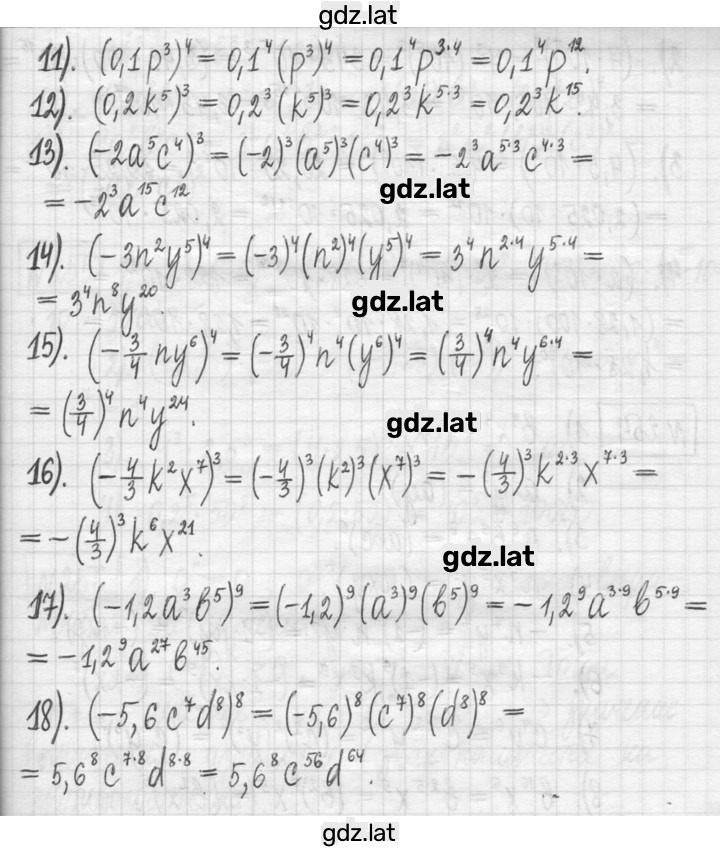 gdz.lat
11). (0,1p³)⁴ = 0,1⁴(p³)⁴ = 0,1⁴p³·⁴ = 0,1⁴p¹².
12). (0,2k⁵)³ = 0,2³(k⁵)³ = 0,2³k⁵·³ = 0,2³k¹⁵.
13). (-2a⁵c⁴)³ = (-2)³(a⁵)³(c⁴)³ = -2³a⁵·³c⁴·³ =
gdz.lat
= -2³a¹⁵c¹².
14). (-3n²y⁵)⁴ = (-3)⁴(n²)⁴(y⁵)⁴ = 3⁴n²·⁴y⁵·⁴ =
gdz.lat
= 3⁴n⁸y²⁰.
15). (-3/4 ny⁶)⁴ = (-3/4)⁴n⁴(y⁶)⁴ = (3/4)⁴n⁴y⁶·⁴ =
= (3/4)⁴n⁴y²⁴.
gdz.lat
16). (-4/3 k²x⁷)³ = (-4/3)³(k²)³(x⁷)³ = -(4/3)³k²·³x⁷·³ =
= -(4/3)³k⁶x²¹.
gdz.lat
17). (-1,2a³b⁵)⁹ = (-1,2)⁹(a³)⁹(b⁵)⁹ = -1,2⁹a³·⁹b⁵·⁹ =
= -1,2⁹a²⁷b⁴⁵.
18). (-5,6c⁷d⁸)⁸ = (-5,6)⁸(c⁷)⁸(d⁸)⁸ =
= 5,6⁸c⁷·⁸d⁸·⁸ = 5,6⁸c⁵⁶d⁶⁴.
gdz.lat